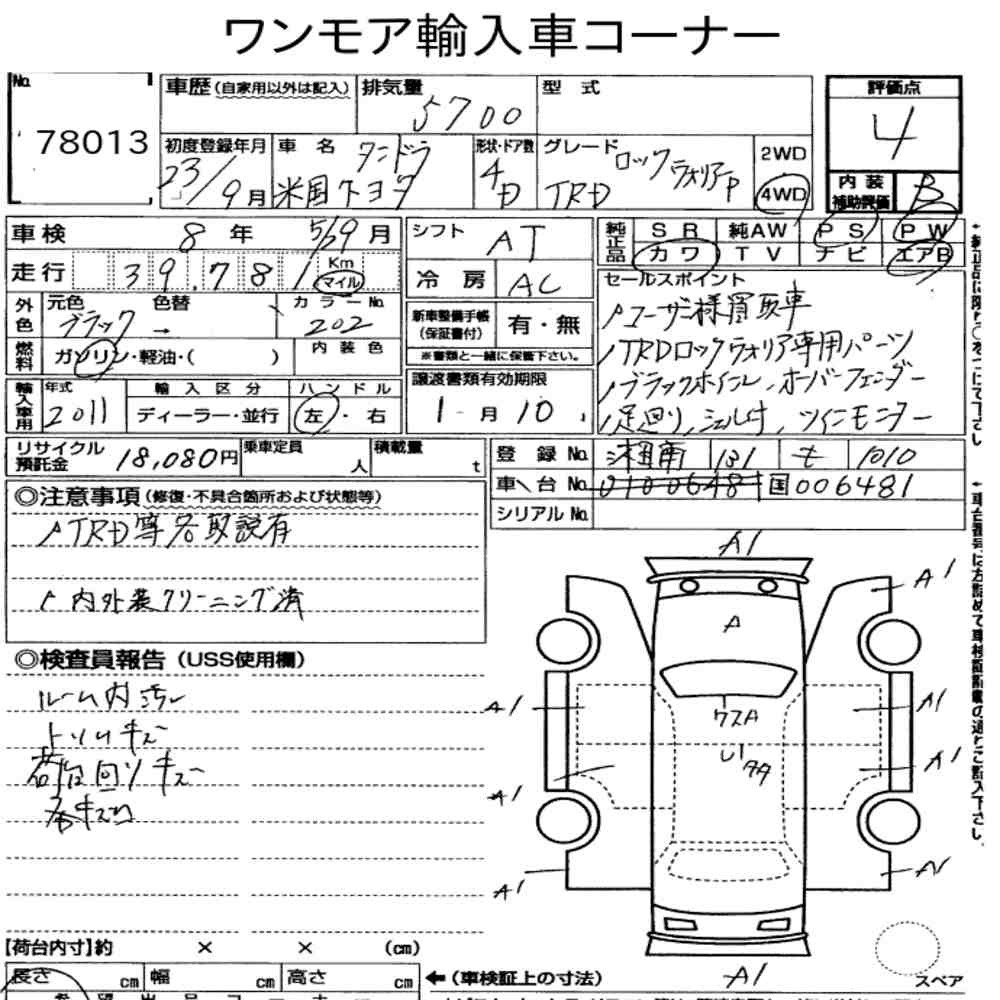 ワンモア輸入車コーナー
No. 78013
車歴 (自家用以外は記入)
排気量 5700
型式
評価点 4
初度登録年月 23/9月
車名 米国トヨタ タンドラ
形状・ドア数 4D
グレード ロックウォリアーP TRD
2WD
4WD
内装補助評価 B
車検 8年 5/29月
走行 39,781 Km マイル
シフト AT
冷房 AC
純正品 SR 純AW PS PW
カワ TV ナビ エアB
外色 元色 ブラック 色替 → カラーNo. 202
燃料 ガソリン・軽油・( ) 内装色
新車整備手帳 (保証書付) 有・無
※書類と一緒に保管下さい。
輸入車用 年式 2011 輸入区分 ディーラー・並行 ハンドル 左・右
譲渡書類有効期限 1月10
セールスポイント
ユーザー様買取車
TRDロックウォリア専用パーツ
ブラックホイル、オーバーフェンダー
足回り、シェル付、ツインモニター
リサイクル預託金 18,080円
乗車定員 人
積載量 t
登録No. 湘南 131 せ 1010
車台No. 01006481 国006481
シリアルNo.
◎注意事項 (修復・不具合箇所および状態等)
TRD等各取説有
内外装クリーニング済
◎検査員報告 (USS使用欄)
ルーム内汚レ
トリムキズ
荷台回りキズ
A1
A1
A
A1 A1
ワスA
A1 A1
A1 A1
A1
スペア
【荷台内寸】約 × × (cm)
長さ cm 幅 cm 高さ cm
← (車検証上の寸法)